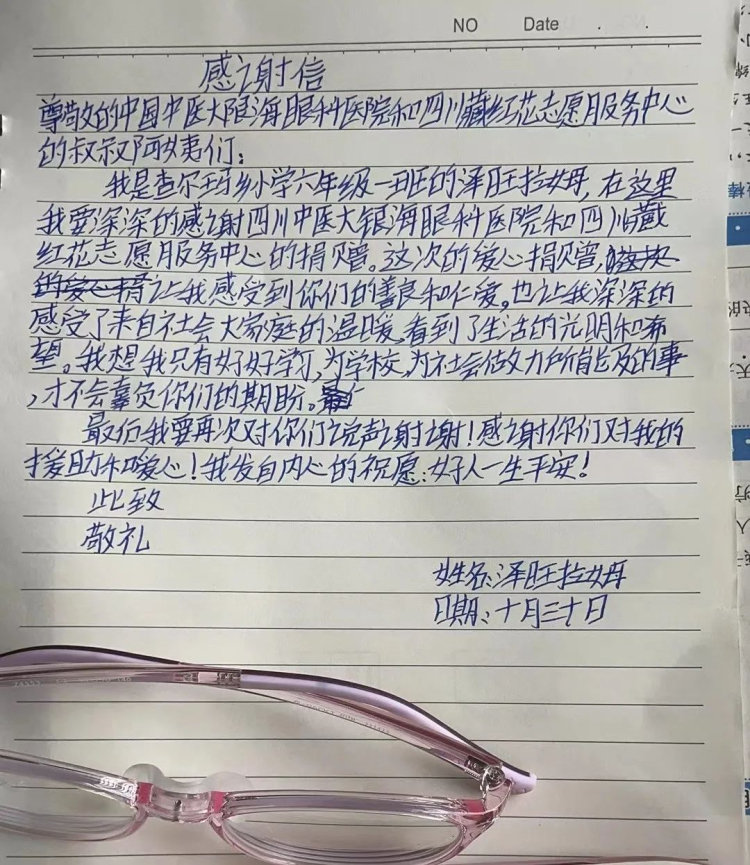 NO Date . .
感谢信
尊敬的中国中医大限海眼科医院和四川藏红花志愿服务中心
的叔叔阿姨们:
我是查尔玛乡小学六年级一班的泽旺拉姆,在这里
我要深深的感谢四川中医大银海眼科医院和四川藏
红花志愿服务中心的捐赠。这次的爱心捐赠,
让我感受到你们的善良和仁爱。也让我深深的
感受了来自社会大家庭的温暖,看到了生活的光明和希
望。我想我只有好好学习,为学校,为社会做力所能及的事
,才不会辜负你们的期盼。
最后我要再次对你们说声谢谢!感谢你们对我的
援助和暖心!我发自内心的祝愿:好人一生平安!
此致
敬礼
姓名:泽旺拉姆
日期:十月三十日